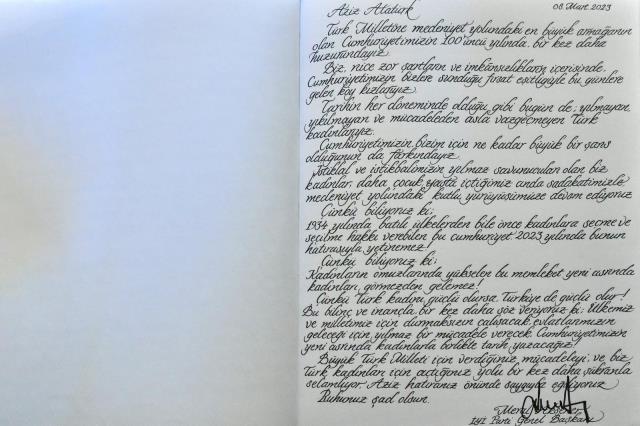 Aziz Atatürk
08 Mart 2023
Türk Milletine medeniyet yolundaki en büyük armağanın
olan Cumhuriyetimizin 100'üncü yılında, bir kez daha
huzurundayız.
Biz, nice zor şartların ve imkânsızlıkların içerisinde,
Cumhuriyetimizin bizlere sunduğu fırsat eşitliğiyle bu günlere
gelen köy kızlarıyız.
Tarihin her döneminde olduğu gibi bugün de; yılmayan,
yıkılmayan ve mücadeleden asla vazgeçmeyen Türk
kadınlarıyız.
Cumhuriyetimizin bizim için ne kadar büyük bir şans
olduğunun da farkındayız.
İstiklal ve istikbalimizin yılmaz savunucuları olan biz
kadınlar, daha çocuk yaşta içtiğimiz anda sadakatimizle
medeniyet yolundaki kutlu yürüyüşümüze devam ediyoruz.
Çünkü biliyoruz ki;
1934 yılında batılı ülkelerden bile önce kadınlara seçme ve
seçilme hakkı verebilen bu cumhuriyet 2023 yılında bunun
hatırasıyla yetinemez!
Çünkü biliyoruz ki;
Kadınların omuzlarında yükselen bu memleket yeni asrında
kadınları görmezden gelemez!
Çünkü Türk kadını güçlü olursa, Türkiye de güçlü olur!
Bu bilinç ve inançla bir kez daha söz veriyoruz ki; Ülkemiz
ve milletimiz için durmaksızın çalışacak, evlatlarımızın
geleceği için yılmaz bir mücadele verecek, Cumhuriyetimizin
yeni asrında kadınlarla birlikte tarih yazacağız!
Büyük Türk Milleti için verdiğiniz mücadeleyi; ve biz
Türk kadınları için açtığınız yolu bir kez daha şükranla
selamlıyor, Aziz hatıranız önünde saygıyla eğiliyoruz.
Ruhunuz şad olsun.
Meral Akşener
İYİ Parti Genel Başkanı